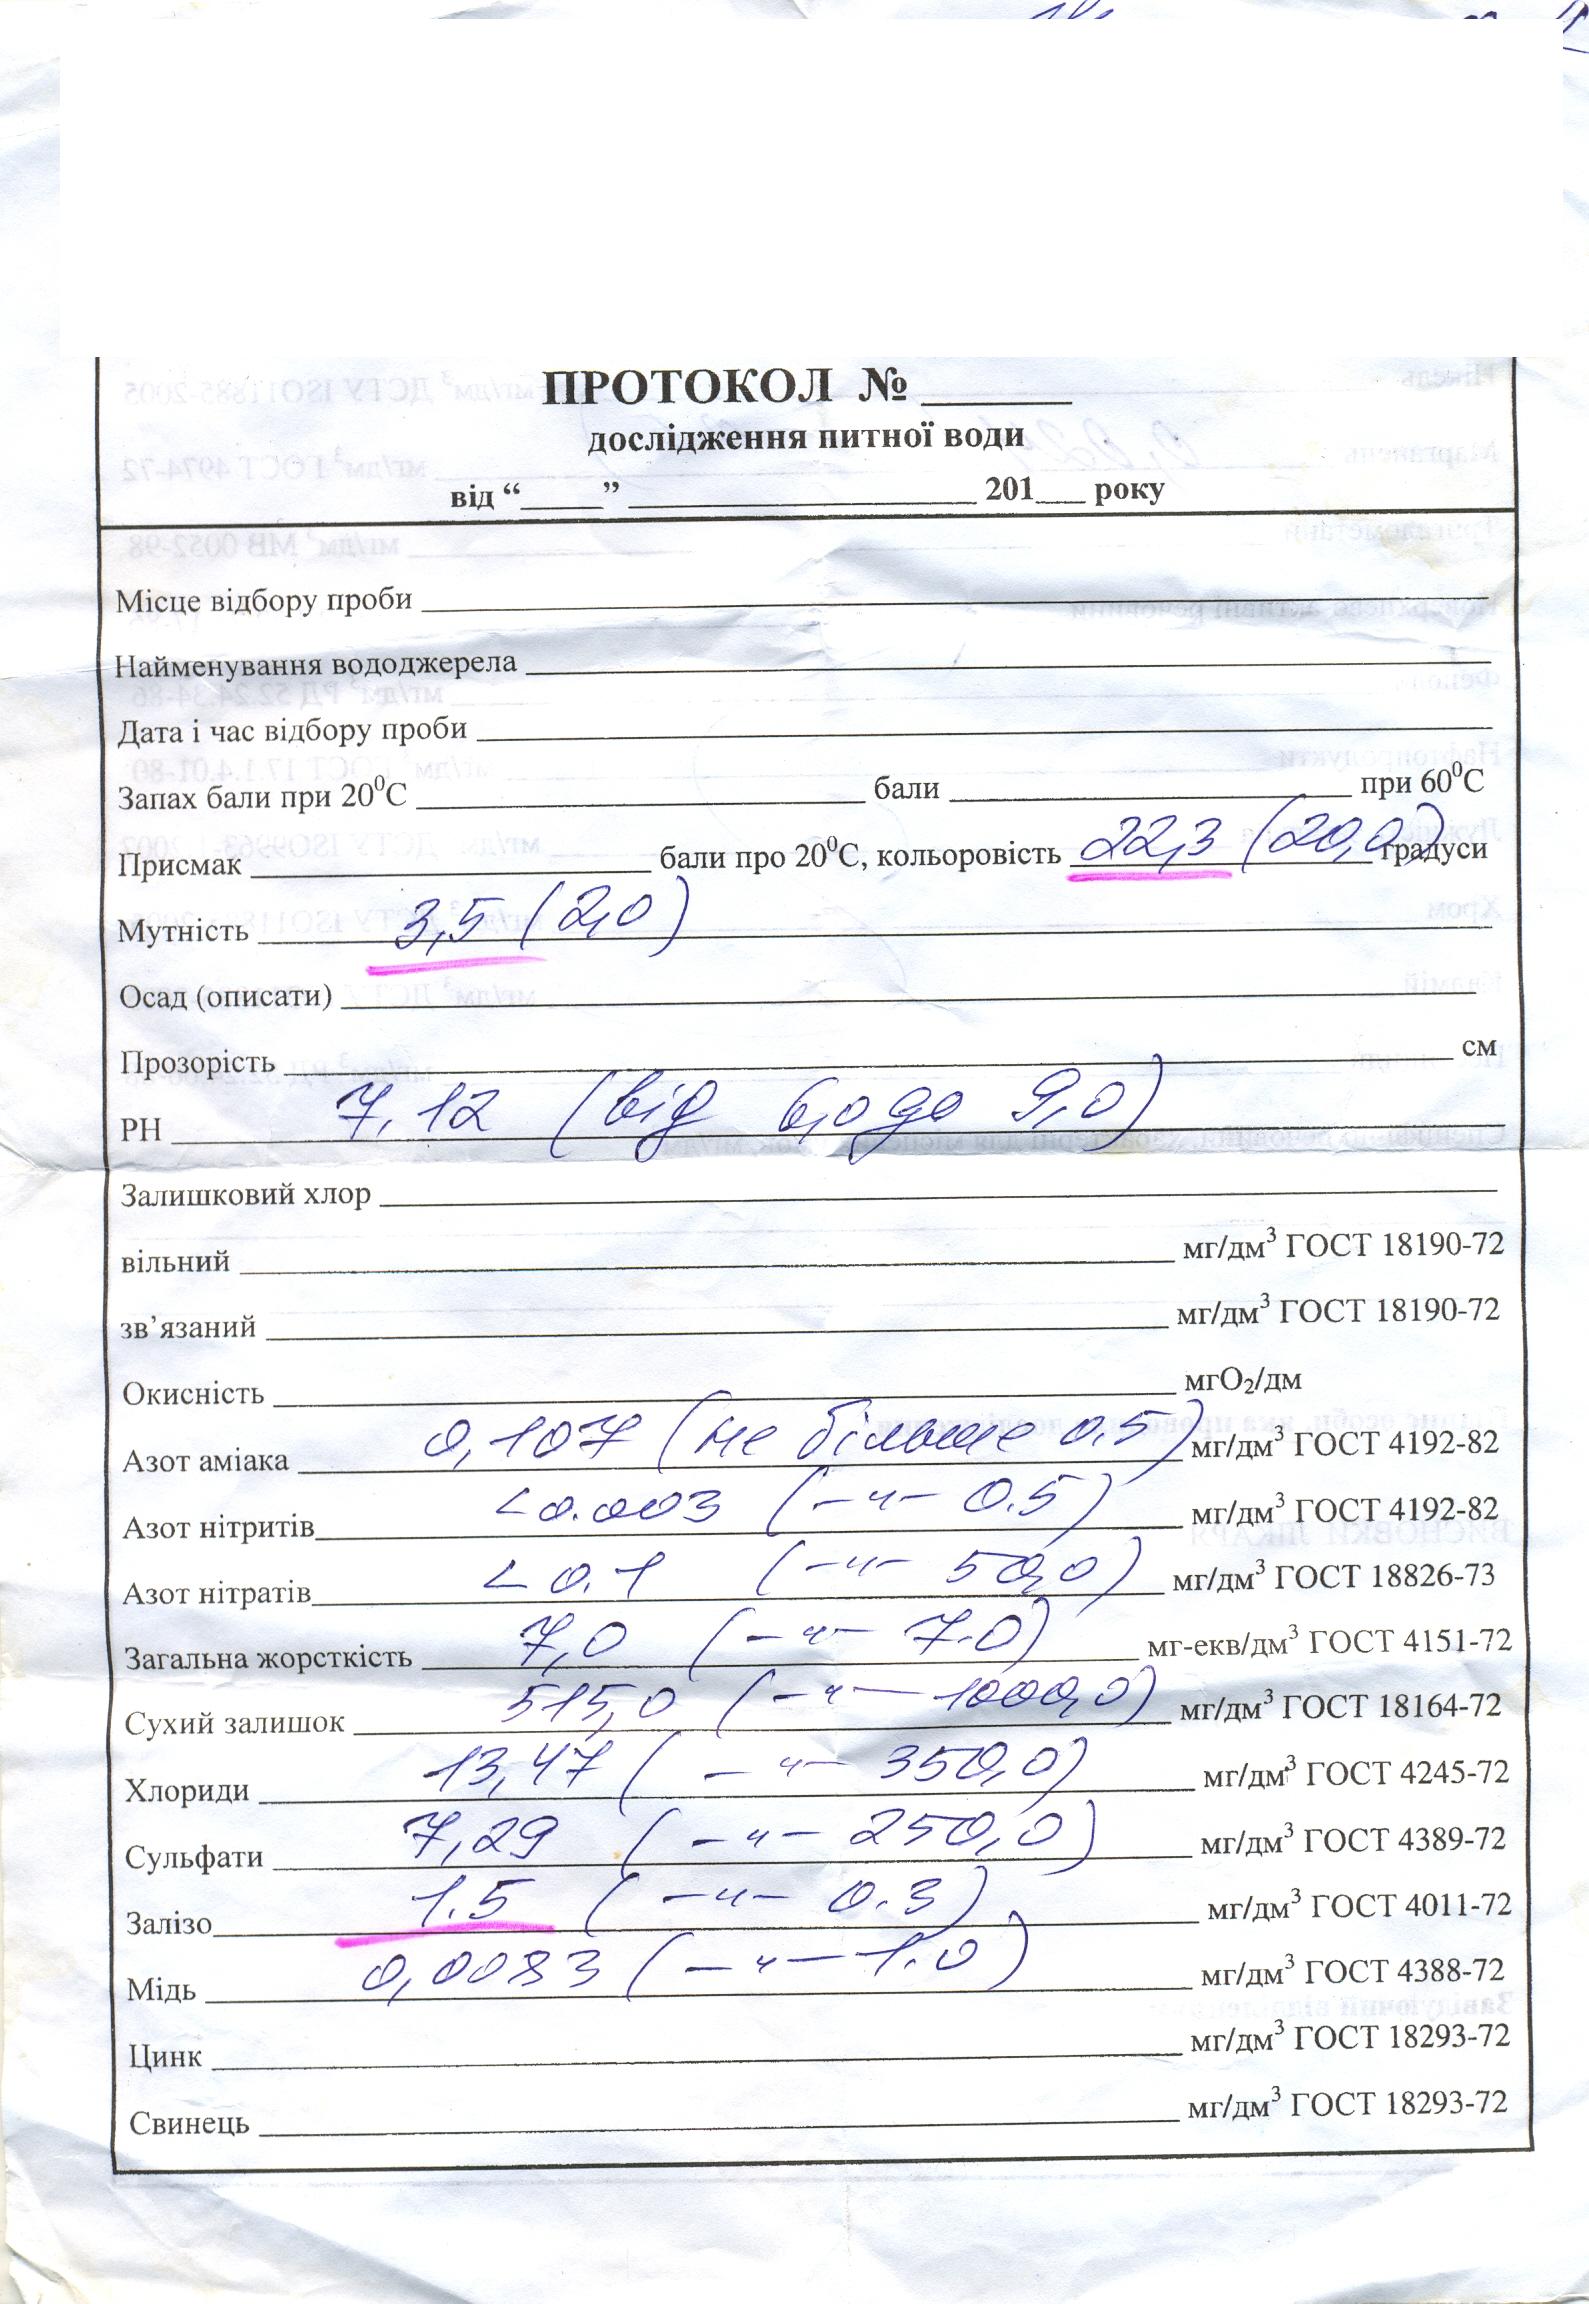 ПРОТОКОЛ № ______
дослідження питної води
від “_____” ____________________ 201___ року
Місце відбору проби
Найменування вододжерела
Дата і час відбору проби
Запах бали при 20⁰С ____________ бали ____________ при 60⁰С
Присмак ____________ бали про 20⁰С, кольоровість 22,3 (20,0) градуси
Мутність 3,5 (2,0)
Осад (описати)
Прозорість ____________ см
РН 7,12 (від 6,0 до 9,0)
Залишковий хлор
вільний ____________ мг/дм³ ГОСТ 18190-72
зв’язаний ____________ мг/дм³ ГОСТ 18190-72
Окисність ____________ мгО₂/дм
Азот аміака 0,107 (не більше 0.5) мг/дм³ ГОСТ 4192-82
Азот нітритів <0.003 (–"– 0.5) мг/дм³ ГОСТ 4192-82
Азот нітратів <0.1 (–"– 50,0) мг/дм³ ГОСТ 18826-73
Загальна жорсткість 7,0 (–"– 7.0) мг-екв/дм³ ГОСТ 4151-72
Сухий залишок 515,0 (–"– 1000,0) мг/дм³ ГОСТ 18164-72
Хлориди 13,47 (–"– 350,0) мг/дм³ ГОСТ 4245-72
Сульфати 7,29 (–"– 250,0) мг/дм³ ГОСТ 4389-72
Залізо 1.5 (–"– 0.3) мг/дм³ ГОСТ 4011-72
Мідь 0,0083 (–"– 1.0) мг/дм³ ГОСТ 4388-72
Цинк ____________ мг/дм³ ГОСТ 18293-72
Свинець ____________ мг/дм³ ГОСТ 18293-72